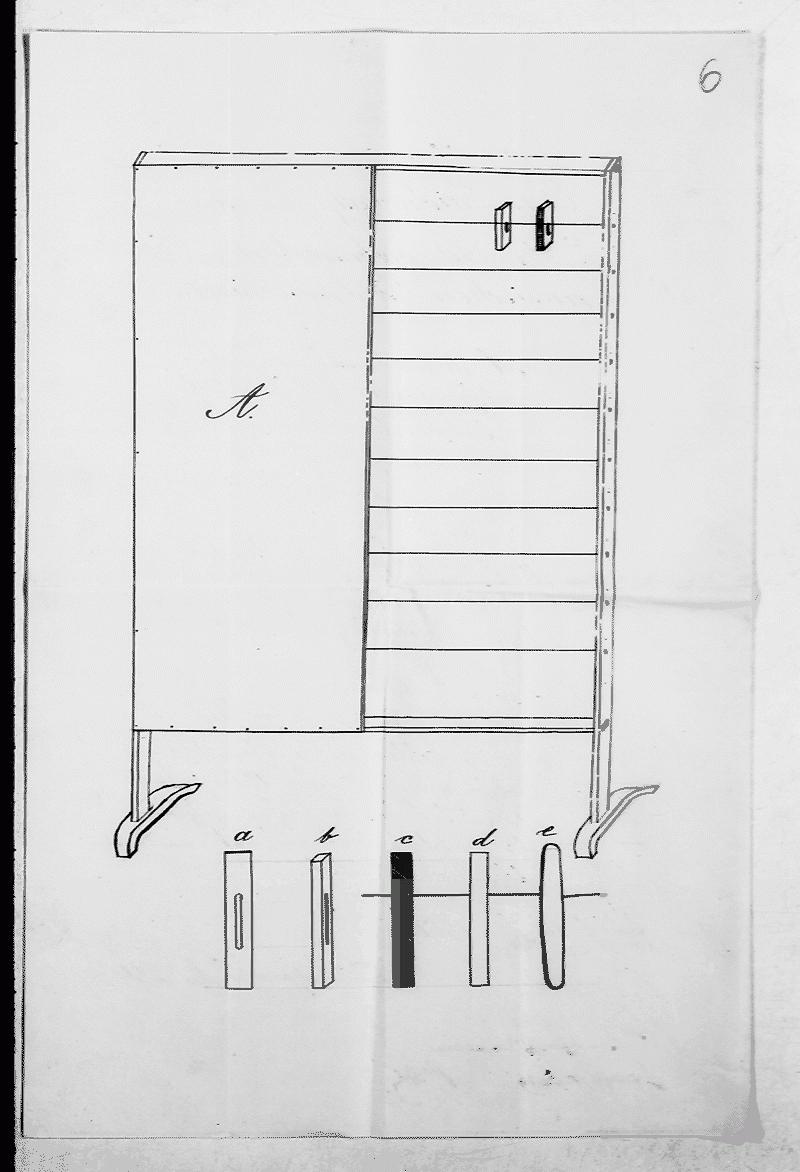 6
A.
a b c d e